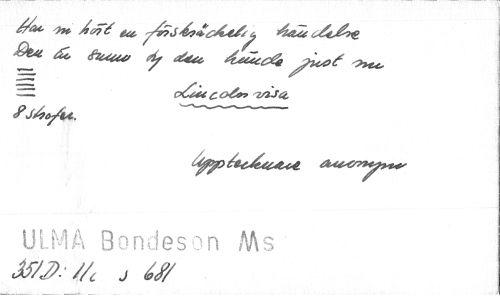 Har ni hört en förskräckelig händelse
Den är sann ty den hände just nu
Lincolnvisa
8 strofer.
Upptecknare anonym
ULMA Bondeson Ms
351D: 11c s 681